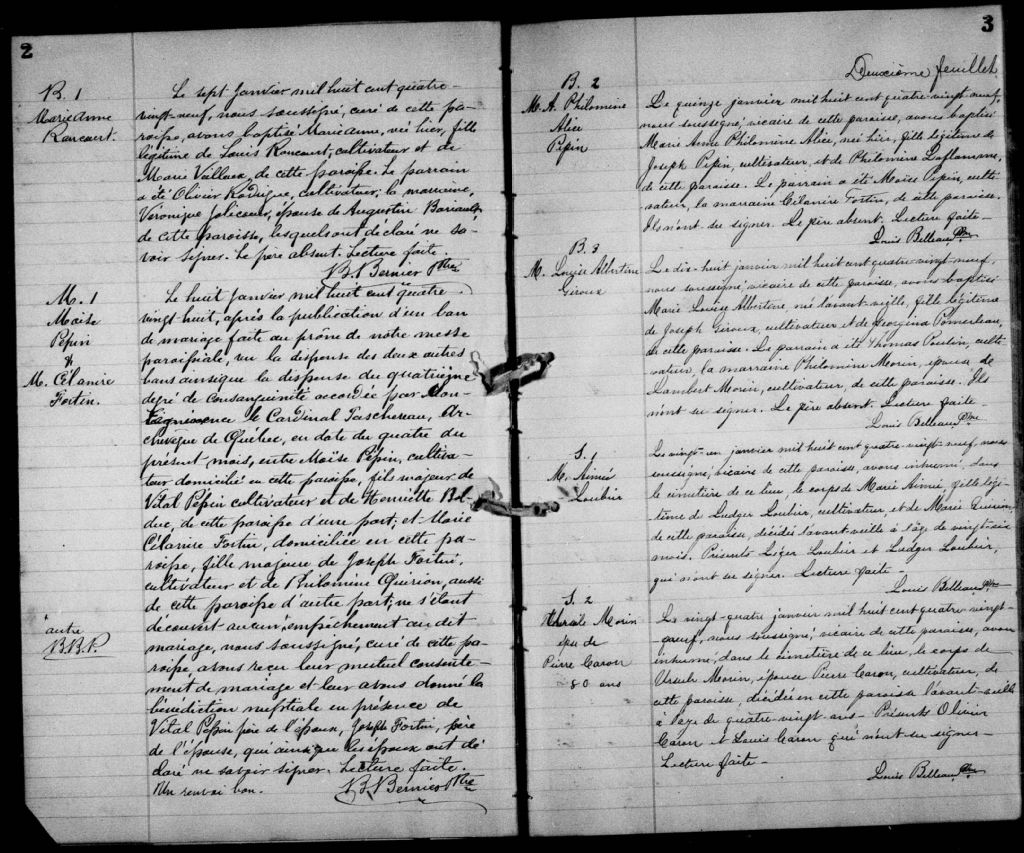 2
B. 1
Marie Anne
Rancourt
Le sept janvier mil huit cent quatre-
vingt-neuf, nous soussigné, curé de cette pa-
roisse, avons baptisé Marie Anne, née hier, fille
légitime de Louis Rancourt, cultivateur et de
Marie Vallaux, de cette paroisse. Le parrain
a été Olivier Rodrigue, cultivateur; la marraine,
Véronique Jolicoeur, épouse de Augustin Bariault
de cette paroisse, lesquels ont déclaré ne sa-
voir signer. Le père absent. Lecture faite.
B. Bernier Ptre
M. 1
Moïse
Pépin
&
M. Célanire
Fortin.
Le huit Janvier mil huit cent quatre
vingt huit, après la publication d'un ban
de mariage faite au prône de notre messe
paroissiale, vu la dispense des deux autres
bans ainsi que la dispense du quatrième
degré de consanguinité accordée par Son
Eminence le Cardinal Taschereau, Ar-
chevêque de Québec, en date du quatre du
présent mois, entre Moïse Pépin, cultiva-
teur domicilié en cette paroisse, fils majeur de
Vital Pépin cultivateur et de Henriette Bol-
duc, de cette paroisse d'une part; et Marie
Célanire Fortin, domiciliée en cette pa-
roisse, fille majeure de Joseph Fortin,
cultivateur et de Philomène Quirion, aussi
de cette paroisse d'autre part; ne s'étant
découvert aucun empêchement au dit
mariage, nous soussigné, curé de cette pa-
roisse, avons reçu leur mutuel consente-
ment de mariage et leur avons donné la
bénédiction nuptiale en présence de
Vital Pépin père de l'époux, Joseph Fortin, père
de l'épouse, qui ainsi que les époux ont dé
claré ne savoir signer. Lecture faite.
Un renvoi bon. B. Bernier Ptre
autre
3
Deuxième feuillet
B. 2
M. A. Philomène
Alice
Pépin
Le quinze janvier mil huit cent quatre-vingt-neuf,
nous soussigné, vicaire de cette paroisse, avons baptisé
Marie Anne Philomène Alice, née hier, fille légitime de
Joseph Pepin, cultivateur, et de Philomène Laflamme,
de cette paroisse. Le parrain a été Moïse Pepin, culti-
vateur, la marraine Célanire Fortin, de cette paroisse.
Ils n'ont su signer. Le père absent. Lecture faite-
Louis Belleau Ptre
B. 3
M. Louise Albertine
Giroux
Le dix-huit janvier mil huit cent quatre-vingt-neuf,
nous soussigné, vicaire de cette paroisse, avons baptisé
Marie Louise Albertine née l'avant-veille, fille légitime
de Joseph Giroux, cultivateur et de Georgina Pomerleau,
de cette paroisse. Le parrain a été Thomas Poulin, culti-
vateur, la marraine Philomène Morin, épouse de
Lambert Morin, cultivateur, de cette paroisse. Ils
n'ont su signer. Le père absent. Lecture faite-
Louis Belleau Ptre
S. 1
M. Aimée
Loubier
Le vingt-un janvier mil huit cent quatre-vingt-neuf, nous
soussigné, vicaire de cette paroisse, avons inhumé, dans
le cimetière de ce lieu, le corps de Marie Aimée, fille légi-
time de Ludger Loubier, cultivateur et de Marie Quirion,
de cette paroisse, décédée l'avant-veille à l'âge de vingt-six
mois. Présents Léger Loubier et Ludger Loubier,
qui n'ont su signer. Lecture faite-
Louis Belleau Ptre
S. 2
Ursule Morin
épse de
Pierre Caron
80 ans
Le vingt-quatre janvier mil huit cent quatre-vingt-
neuf, nous soussigné, vicaire de cette paroisse, avons
inhumé, dans le cimetière de ce lieu, le corps de
Ursule Morin, épouse Pierre Caron, cultivateur, de
cette paroisse, décédée en cette paroisse l'avant-veille
à l'âge de quatre-vingt ans- Présents Olivier
Caron et Louis Caron qui n'ont su signer-
Lecture faite-
Louis Belleau Ptre